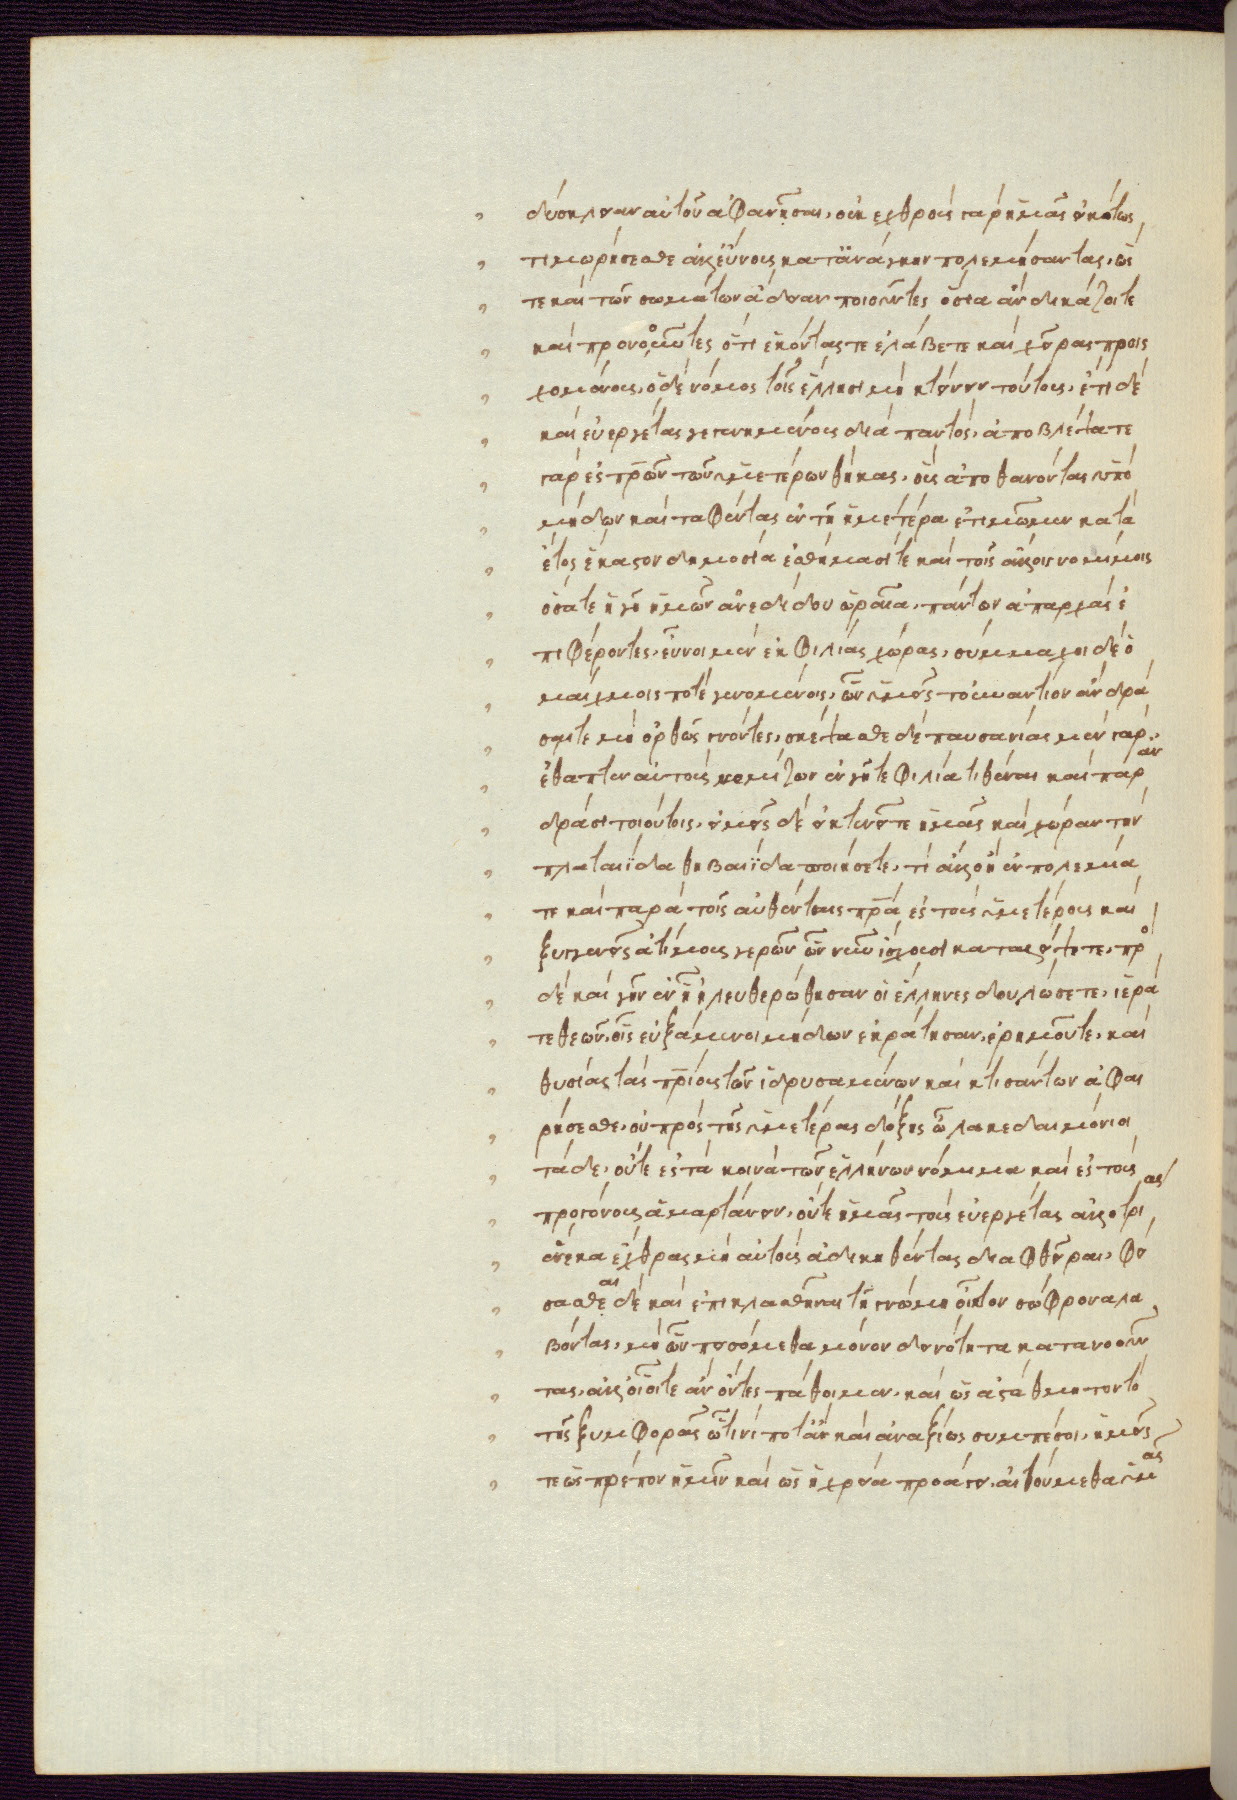 δύσκλειαν αὐτοῦ ἀφανῆσαι, οὐκ ἐχθροὺς γὰρ ἡμᾶς εἰκότως
τιμωρήσεσθε ἀλλ' εὔνους κατ' ἀνάγκην πολεμήσαντας, ὥς
τε καὶ τῶν σωμάτων ἄδειαν ποιοῦντες ὅσια ἂν δικάζοιτε
καὶ προνοοῦντες ὅτι ἑκόντας τε ἐλάβετε καὶ χεῖρας προις
χομένους, ὁ δὲ νόμος τοῖς ἕλλησι μὴ κτείνειν τούτους, ἔτι δὲ
καὶ εὐεργέτας γεγενημένους διὰ παντός, ἀποβλέψατε
γὰρ ἐς πρων τῶν ὑμετέρων θήκας, οὓς ἀποθανόντας ὑπὸ
μήδων καὶ ταφέντας ἐν τῇ ἡμετέρα ἐτιμῶμεν κατὰ
ἔτος ἕκαστον δημοσία ἐσθήμασί τε καὶ τοῖς ἄλλοις νομίμοις
ὅσα τε ἡ γῆ ἡμῶν ἀνεδίδου ὡραῖα, πάντων ἀπαρχὰς ἐ
πιφέροντες, εὖνοι μὲν ἐκ φιλίας χώρας, σύμμαχοι δὲ ὁ
μαίχμοις ποτὲ γενομένοις, ὧν ὑμεῖς τοὐναντίον ἂν δρά
σαιτε μὴ ὀρθῶς γνόντες, σκέψασθε δὲ παυσανίας μὲν γὰρ
ἔθαπτεν αὐτοὺς νομίζων ἐν γῆ τε φιλία τιθέναι καὶ παρ' ἀν
δράσι τοιούτοις, ὑμεῖς δὲ εἰ κτενεῖτε ἡμᾶς καὶ χώραν τὴν
πλαταιΐδα θηβαιΐδα ποιήσετε, τί ἄλλο ἢ ἐν πολεμία
τε καὶ παρὰ τοῖς αὐθένταις πρα ἐς τοὺς ὑμετέρους καὶ
ξυγγενεῖς ἀτίμους γερῶν ὧν νῦν ἴσχουσι καταλείψετε, πρὸ
δὲ καὶ γῆν ἐν ᾗ ἠλευθερώθησαν οἱ ἕλληνες δουλώσετε, ἱερά
τε θεῶν, οἷς εὐξάμενοι μήδων ἐκράτησαν, ἐρημοῦτε, καὶ
θυσίας τὰς πρίους τῶν ἱδρυσαμένων καὶ κτισάντων ἀφαι
ρήσεσθε, οὐ πρὸς τῆς ὑμετέρας δόξης ὦ λακεδαιμόνιοι
τάδε, οὔτε ἐς τὰ κοινὰ τῶν ἑλλήνων νόμιμα καὶ ἐς τοὺς
προγόνους ἁμαρτάνειν, οὔτε ἡμᾶς τοὺς εὐεργέτας ἀλλοτρίας
ἕνεκα ἔχθρας μὴ αὐτοὺς ἀδικηθέντας διαφθεῖραι, φεί
σασθε αι δὲ καὶ ἐπικλασθῆναι τῇ γνώμη οἶκτον σώφρονα λα
βόντας, μὴ ὧν πεισόμεθα μόνον δεινότητα κατανοοῦν
τας, ἀλλ' οἷοί τε ἂν ὄντες πάθοιμεν, καὶ ὡς ἀστάθμητον τὸ
τῆς ξυμφορᾶς ᾧ τινί ποτ' ἂν καὶ ἀναξίως συμπέσοι, ἡμεῖς
τε ὡς πρέπον ἡμῖν καὶ ὡς ἡ χρεία προάγει, αἰτούμεθα ὑμᾶς